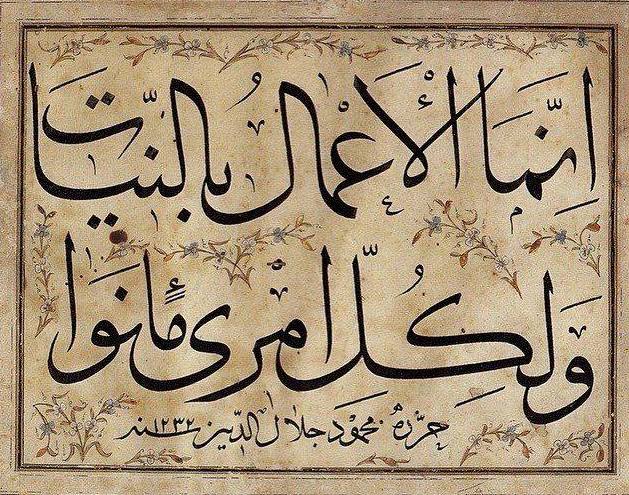 اِنَّمَا الْاَعْمَالُ بِالنِّيَّاتِ
وَلِكُلِّ امْرِئٍ مَانَوَا
حرّره محمود جلال الدّين سنه ١٢٣٢